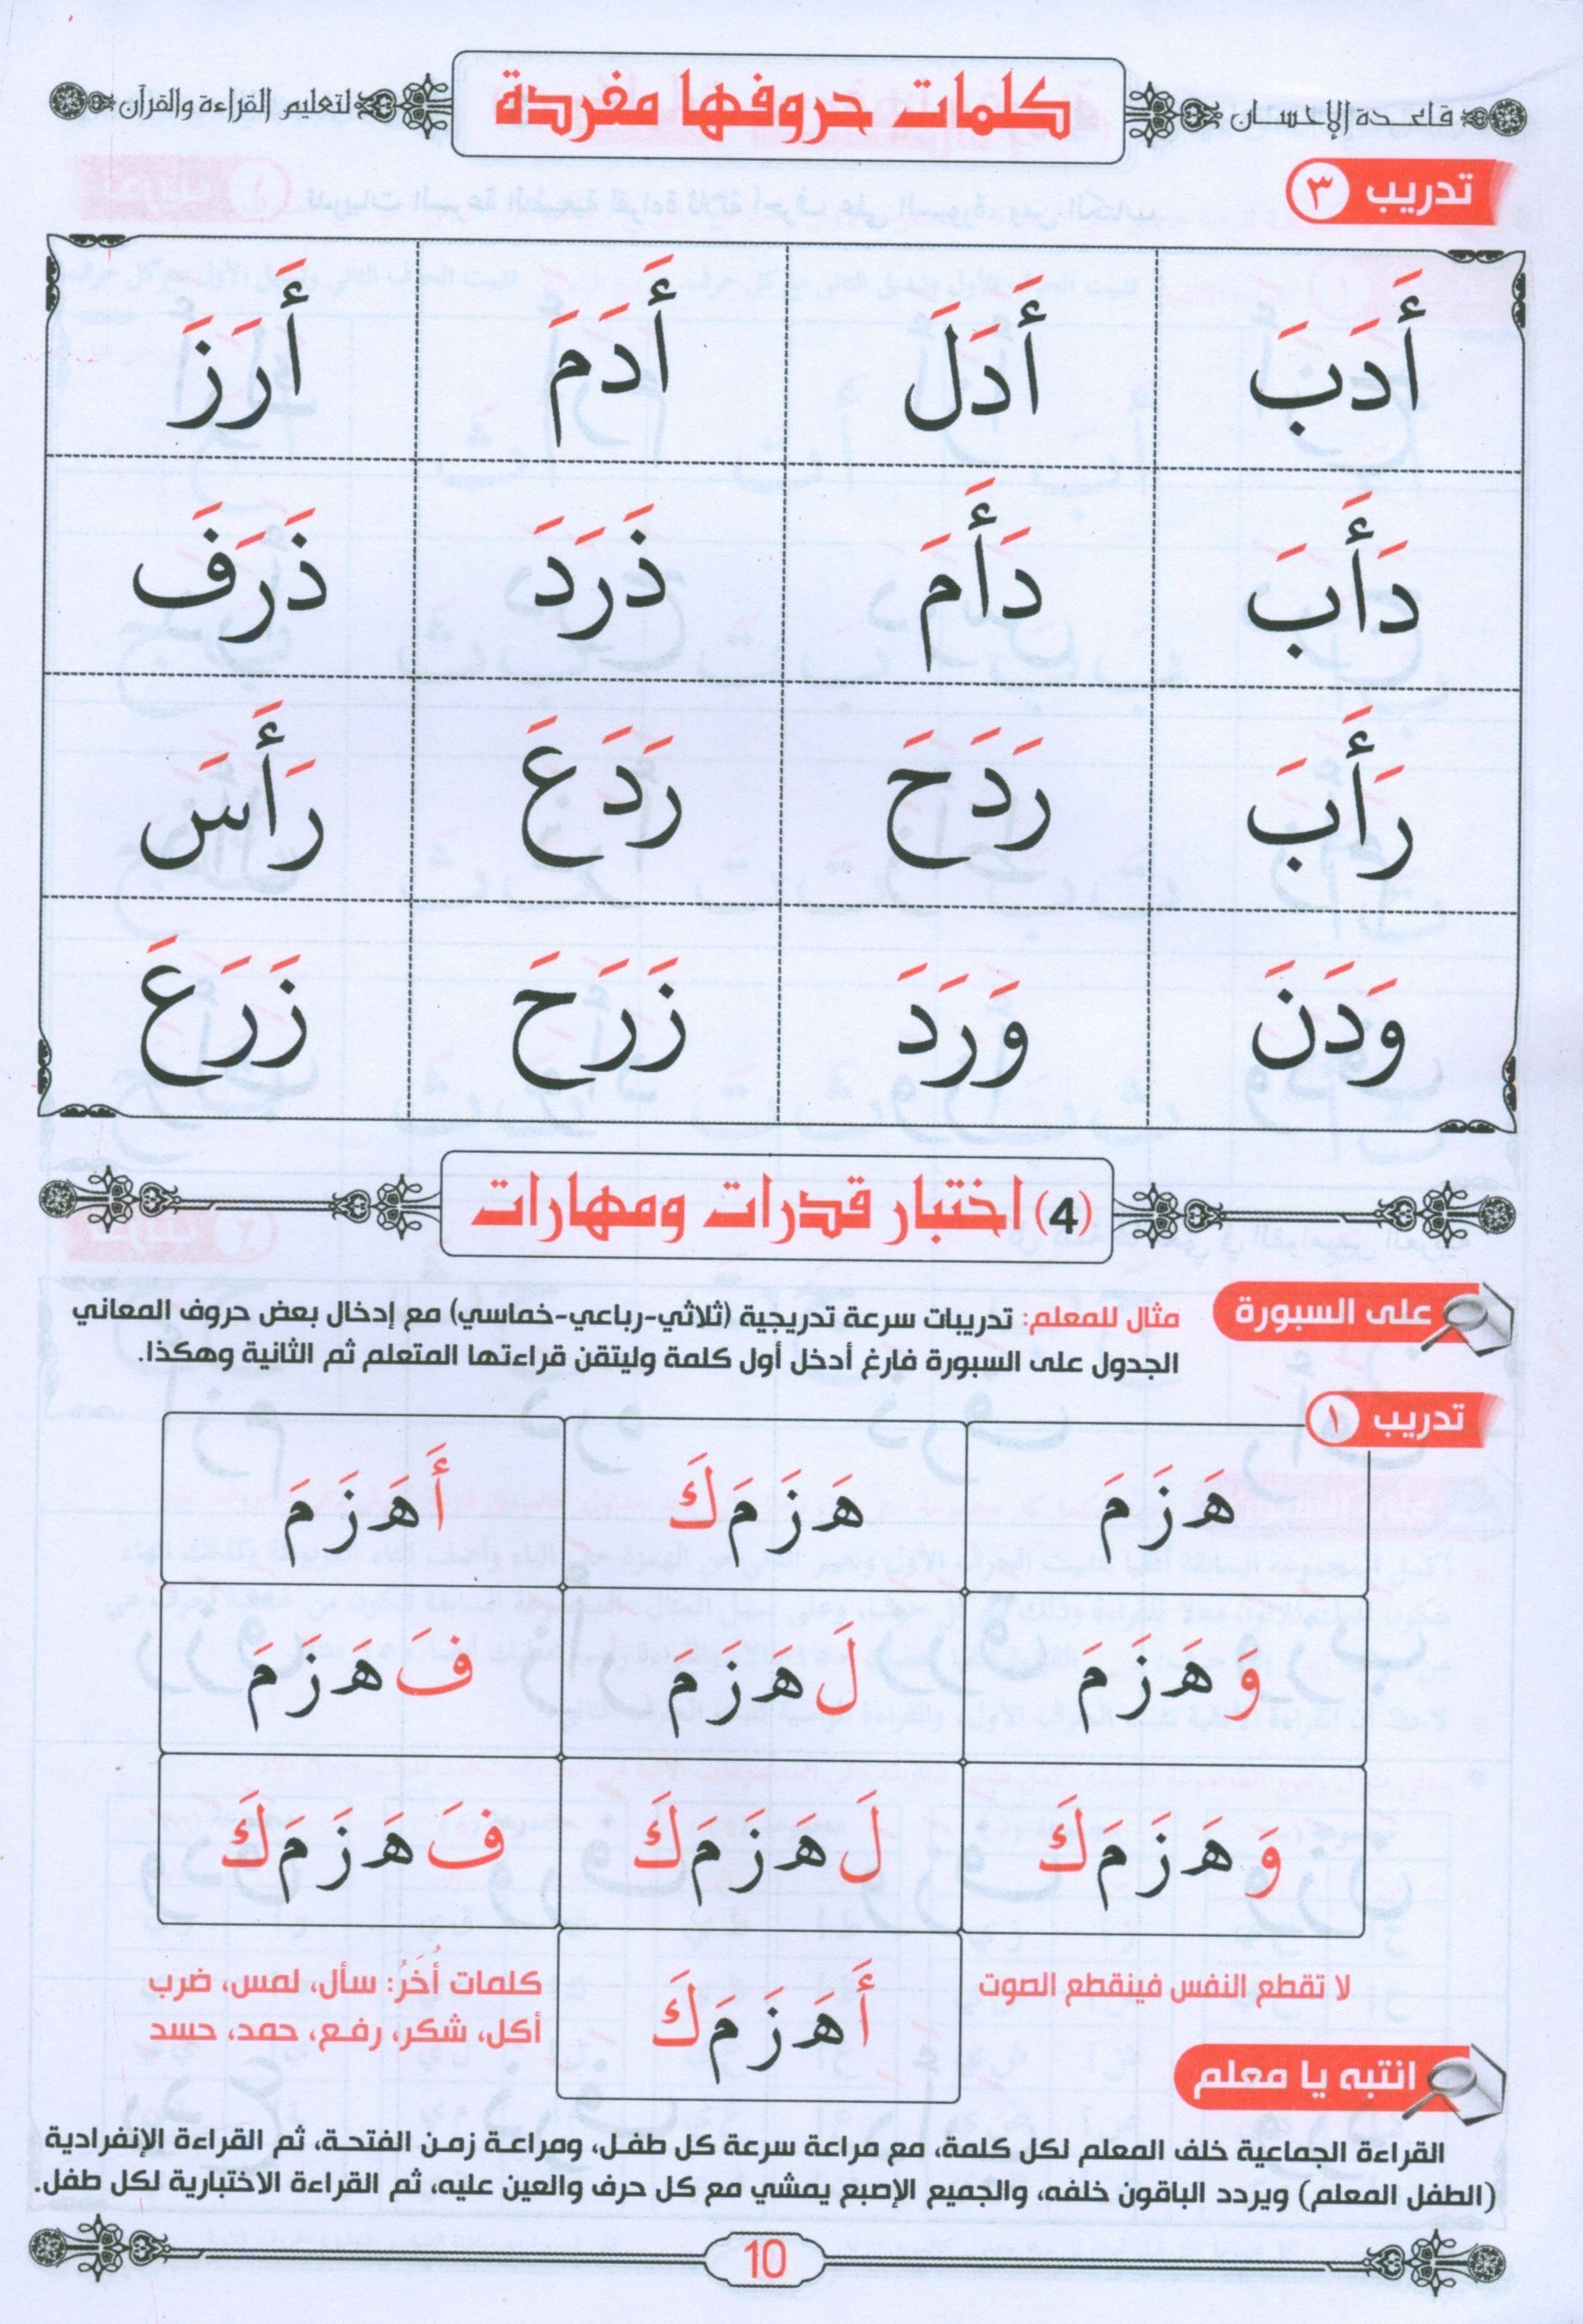 قاعدة الإحسان
كلمات حروفها مفردة
لتعليم القراءة والقرآن
تدريب ٣
أَدَبَ أَدَلَ أَدَمَ أَرَزَ
دَأَبَ دَأَمَ ذَرَدَ ذَرَفَ
رَأَبَ رَدَحَ رَدَعَ رَأَسَ
وَدَنَ وَرَدَ زَرَحَ زَرَعَ
(4) اختبار قدرات ومهارات
على السبورة
مثال للمعلم: تدريبات سرعة تدريجية (ثلاثي-رباعي-خماسي) مع إدخال بعض حروف المعاني
الجدول على السبورة فارغ أدخل أول كلمة وليتقن قراءتها المتعلم ثم الثانية وهكذا.
تدريب ١
هَزَمَ هَزَمَكَ أَهَزَمَ
وَهَزَمَ لَهَزَمَ فَهَزَمَ
وَهَزَمَكَ لَهَزَمَكَ فَهَزَمَكَ
لا تقطع النفس فينقطع الصوت
أَهَزَمَكَ
كلمات أُخَرُ: سأل، لمس، ضرب
أكل، شكر، رفع، حمد، حسد
انتبه يا معلم
القراءة الجماعية خلف المعلم لكل كلمة، مع مراعة سرعة كل طفل، ومراعة زمن الفتحة، ثم القراءة الإنفرادية
(الطفل المعلم) ويردد الباقون خلفه، والجميع الإصبع يمشي مع كل حرف والعين عليه، ثم القراءة الاختبارية لكل طفل.
10